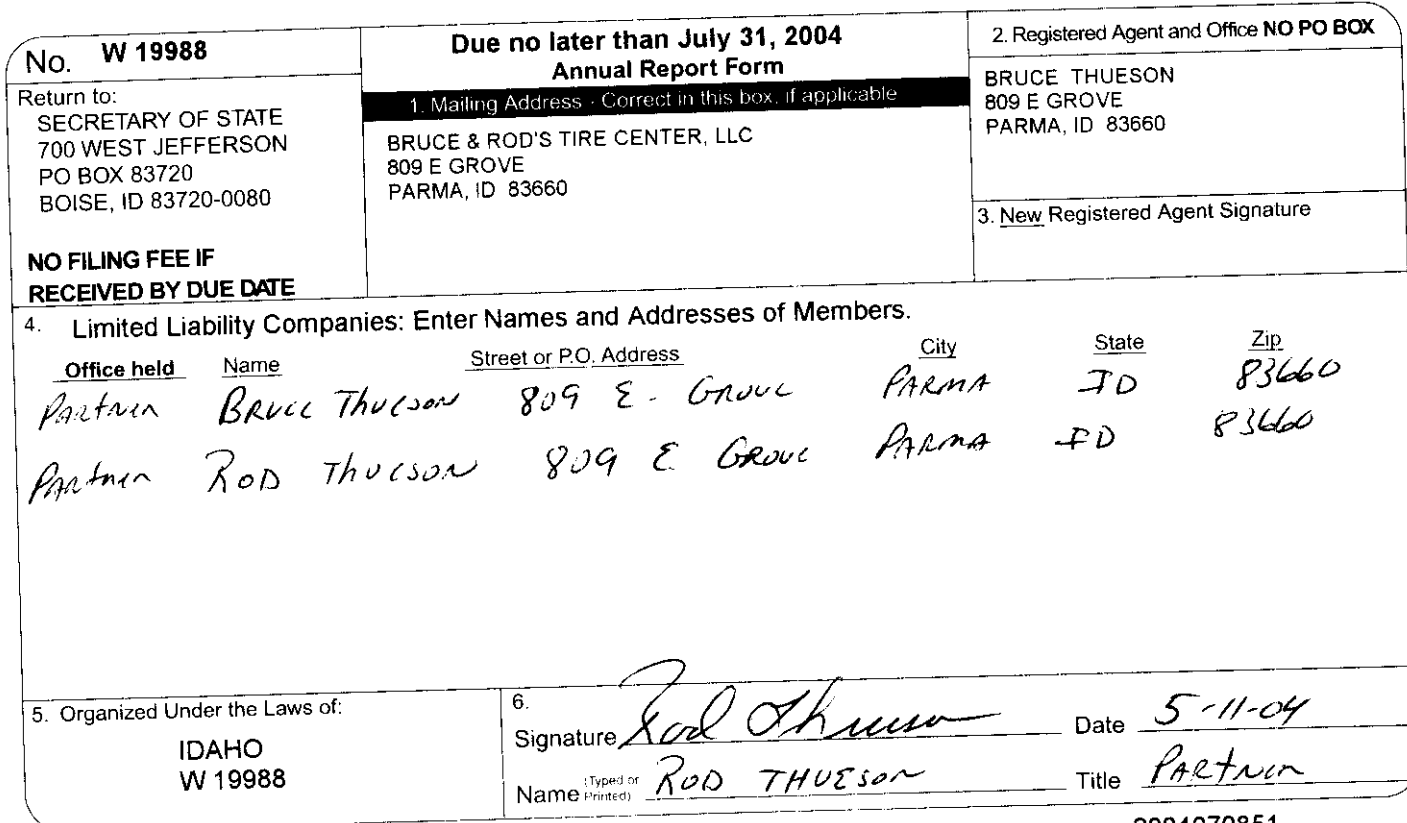 No. W 19988
Return to:
SECRETARY OF STATE
700 WEST JEFFERSON
PO BOX 83720
BOISE, ID 83720-0080
NO FILING FEE IF
RECEIVED BY DUE DATE
Due no later than July 31, 2004
Annual Report Form
1. Mailing Address - Correct in this box, if applicable
BRUCE & ROD'S TIRE CENTER, LLC
809 E GROVE
PARMA, ID 83660
2. Registered Agent and Office NO PO BOX
BRUCE THUESON
809 E GROVE
PARMA, ID 83660
3. New Registered Agent Signature
4. Limited Liability Companies: Enter Names and Addresses of Members.
Office held Name Street or P.O. Address City State Zip
Partner BRUCE THUESON 809 E. GROVE PARMA ID 83660
Partner ROD THUESON 809 E GROVE PARMA ID 83660
5. Organized Under the Laws of:
IDAHO
W 19988
6.
Signature Rod Thueson Date 5-11-04
Name (Typed or Printed) ROD THUESON Title PARTNER